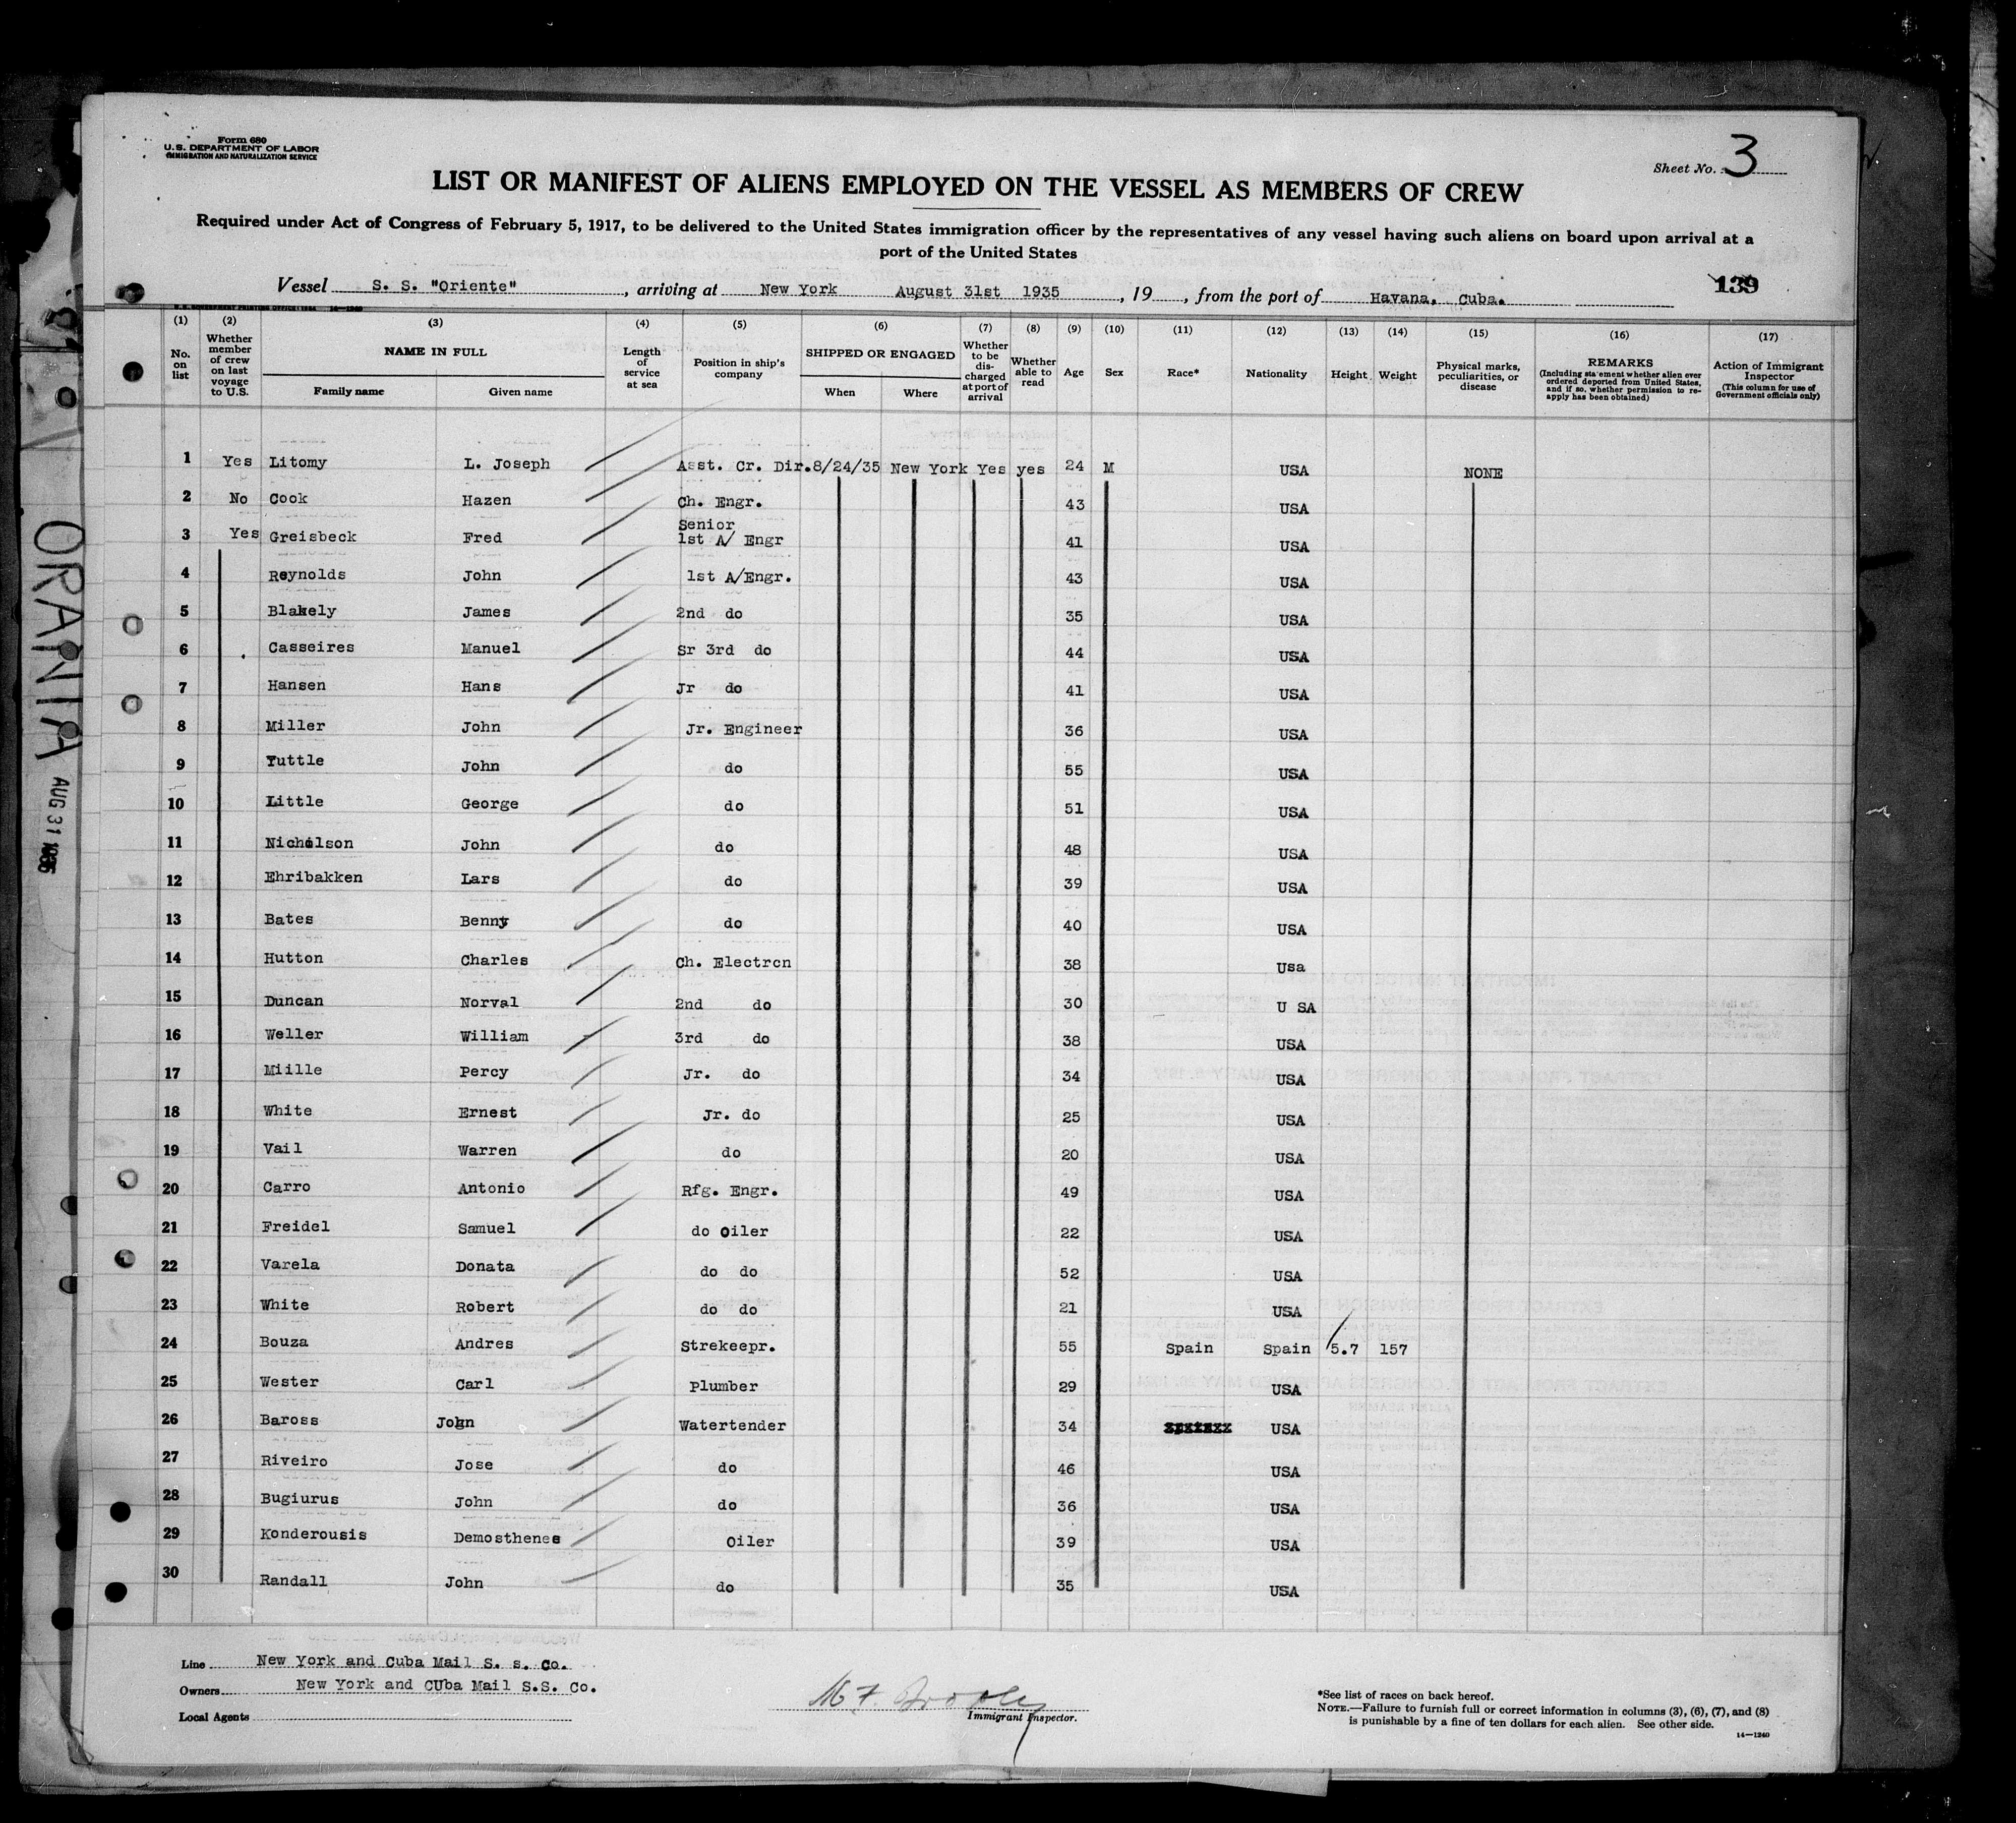 Form 680
U.S. DEPARTMENT OF LABOR
IMMIGRATION AND NATURALIZATION SERVICE
Sheet No. 3
LIST OR MANIFEST OF ALIENS EMPLOYED ON THE VESSEL AS MEMBERS OF CREW
Required under Act of Congress of February 5, 1917, to be delivered to the United States immigration officer by the representatives of any vessel having such aliens on board upon arrival at a
port of the United States
Vessel S. S. "Oriente", arriving at New York August 31st 1935, 19, from the port of Havana, Cuba.
139
U.S. GOVERNMENT PRINTING OFFICE: 1934 14—1240
(1) No. on list
(2) Whether member of crew on last voyage to U.S.
(3) NAME IN FULL Family name Given name
(4) Length of service at sea
(5) Position in ship's company
(6) SHIPPED OR ENGAGED When Where
(7) Whether to be discharged at port of arrival
(8) Whether able to read
(9) Age
(10) Sex
(11) Race*
(12) Nationality
(13) Height
(14) Weight
(15) Physical marks, peculiarities, or disease
(16) REMARKS (Including statement whether alien ever ordered deported from United States, and if so, whether permission to re-apply has been obtained)
(17) Action of Immigrant Inspector (This column for use of Government officials only)
1 Yes Litomy L. Joseph Asst. Cr. Dir. 8/24/35 New York Yes yes 24 M USA NONE
2 No Cook Hazen Ch. Engr. 43 USA
3 Yes Greisbeck Fred Senior 1st A/ Engr 41 USA
4 Reynolds John 1st A/Engr. 43 USA
5 Blakely James 2nd do 35 USA
6 Casseires Manuel Sr 3rd do 44 USA
7 Hansen Hans Jr do 41 USA
8 Miller John Jr. Engineer 36 USA
9 Tuttle John do 55 USA
10 Little George do 51 USA
11 Nicholson John do 48 USA
12 Ehribakken Lars do 39 USA
13 Bates Benny do 40 USA
14 Hutton Charles Ch. Electrcn 38 Usa
15 Duncan Norval 2nd do 30 U SA
16 Weller William 3rd do 38 USA
17 Miille Percy Jr. do 34 USA
18 White Ernest Jr. do 25 USA
19 Vail Warren do 20 USA
20 Carro Antonio Rfg. Engr. 49 USA
21 Freidel Samuel do Oiler 22 USA
22 Varela Donata do do 52 USA
23 White Robert do do 21 USA
24 Bouza Andres Strekeepr. 55 Spain Spain 5.7 157
25 Wester Carl Plumber 29 USA
26 Baross John Watertender 34 USA
27 Riveiro Jose do 46 USA
28 Bugiurus John do 36 USA
29 Konderousis Demosthenes Oiler 39 USA
30 Randall John do 35 USA
Line New York and Cuba Mail S. s. Co.
Owners New York and CUba Mail S.S. Co.
Local Agents
Immigrant Inspector.
*See list of races on back hereof.
NOTE.—Failure to furnish full or correct information in columns (3), (6), (7), and (8)
is punishable by a fine of ten dollars for each alien. See other side.
14—1240
ORANIA
AUG 31 1935